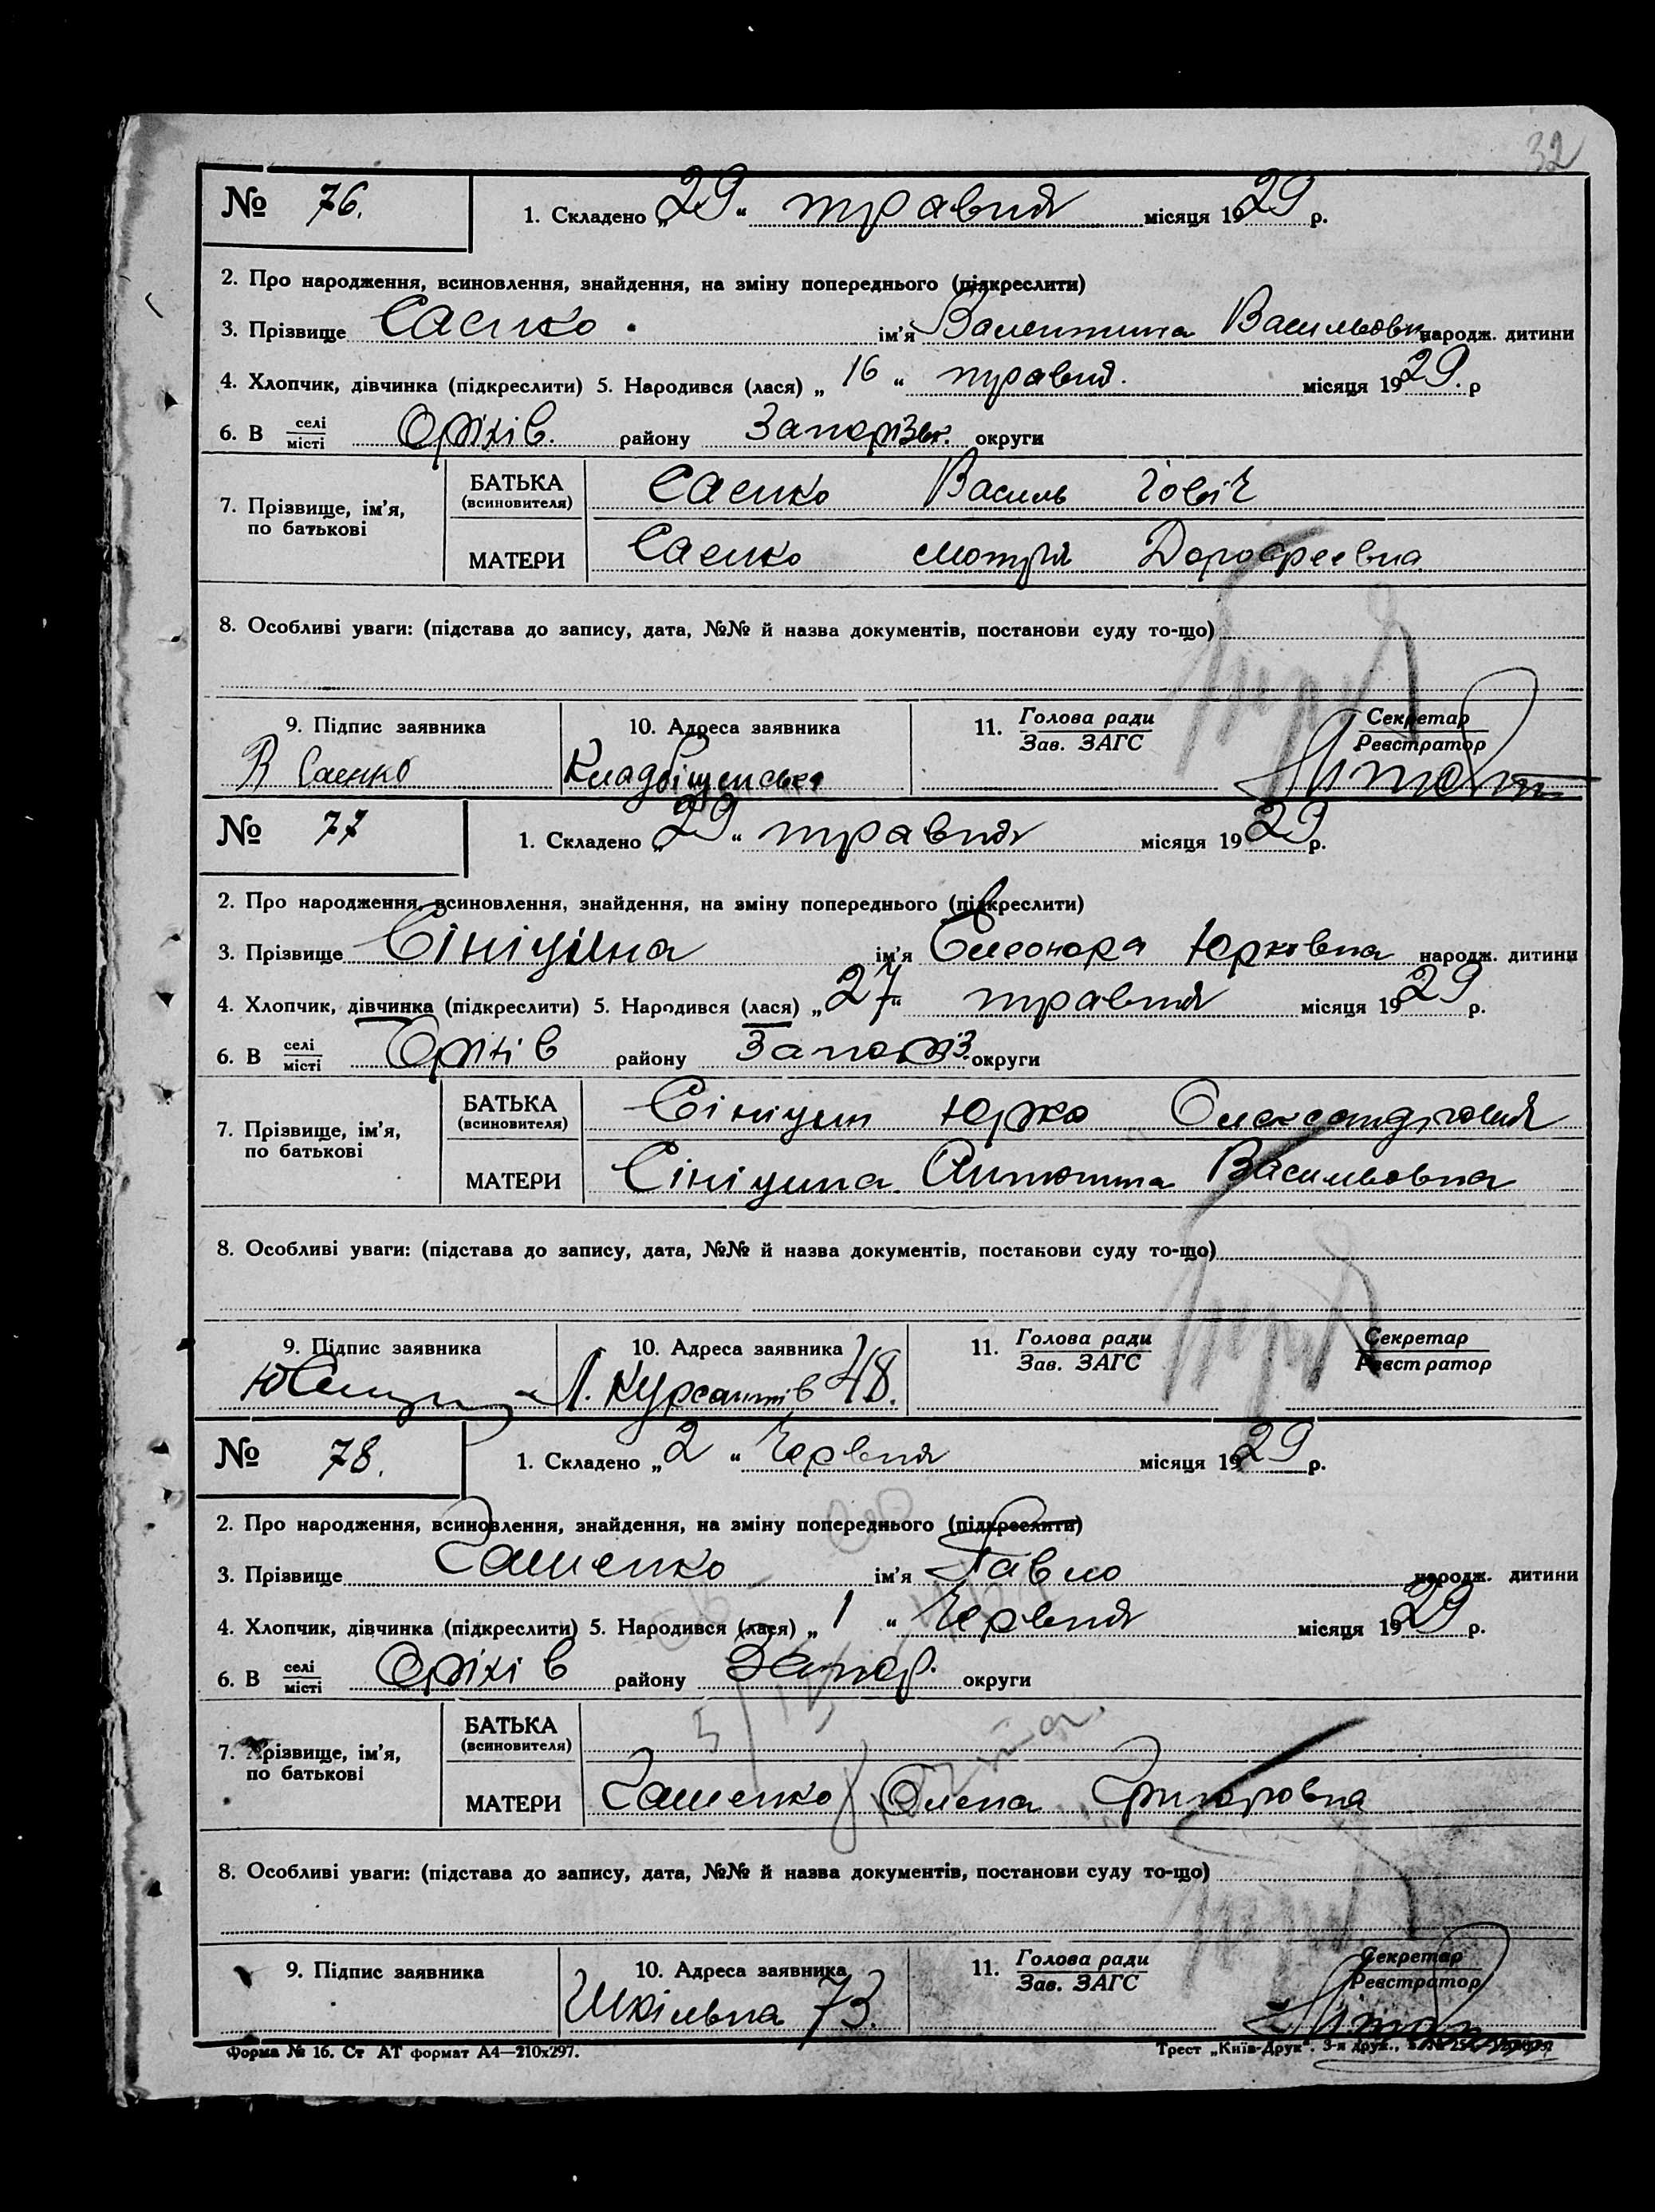 32
№ 76. 1. Складено „29“ травня місяця 1929 р.
2. Про народження, всиновлення, знайдення, на зміну попереднього (підкреслити)
3. Прізвище Саєнко ім'я Валентина Васильовн народж. дитини
4. Хлопчик, дівчинка (підкреслити) 5. Народився (лася) „16“ травня. місяця 1929. р
6. В селі/місті Оріхів. району Запорізьк. округи
7. Прізвище, ім'я, по батькові БАТЬКА (всиновителя) Саєнко Василь
МАТЕРИ Саєнко Мотря Дорофеевна
8. Особливі уваги: (підстава до запису, дата, №№ й назва документів, постанови суду то-що)
9. Підпис заявника 10. Адреса заявника 11. Голова ради/Зав. ЗАГС Секретар/Реєстратор
В Саенко Кладбіщенська
№ 77 1. Складено „29“ травня місяця 1929 р.
2. Про народження, всиновлення, знайдення, на зміну попереднього (підкреслити)
3. Прізвище Сініцина ім'я Елеонора Юрковна народж. дитини
4. Хлопчик, дівчинка (підкреслити) 5. Народився (лася) „27“ травня місяця 1929 р.
6. В селі/місті Оріхів району Запоріз. округи
7. Прізвище, ім'я, по батькові БАТЬКА (всиновителя) Сініцин Юрко
МАТЕРИ Сініцина Васильовна
8. Особливі уваги: (підстава до запису, дата, №№ й назва документів, постанови суду то-що)
9. Підпис заявника 10. Адреса заявника 11. Голова ради/Зав. ЗАГС Секретар/Реєстратор
Л. Курсантів 48.
№ 78. 1. Складено „2“ Червня місяця 1929 р.
2. Про народження, всиновлення, знайдення, на зміну попереднього (підкреслити)
3. Прізвище ім'я Павло народж. дитини
4. Хлопчик, дівчинка (підкреслити) 5. Народився (лася) „1“ Червня місяця 1929 р.
6. В селі/місті Оріхів району Запор. округи
7. Прізвище, ім'я, по батькові БАТЬКА (всиновителя)
МАТЕРИ Олена Григоровна
8. Особливі уваги: (підстава до запису, дата, №№ й назва документів, постанови суду то-що)
9. Підпис заявника 10. Адреса заявника 11. Голова ради/Зав. ЗАГС Секретар/Реєстратор
Шкільна 73.
Форма № 16. Ст АТ формат А4—210х297. Трест „Київ-Друк“. 3-я друк.,